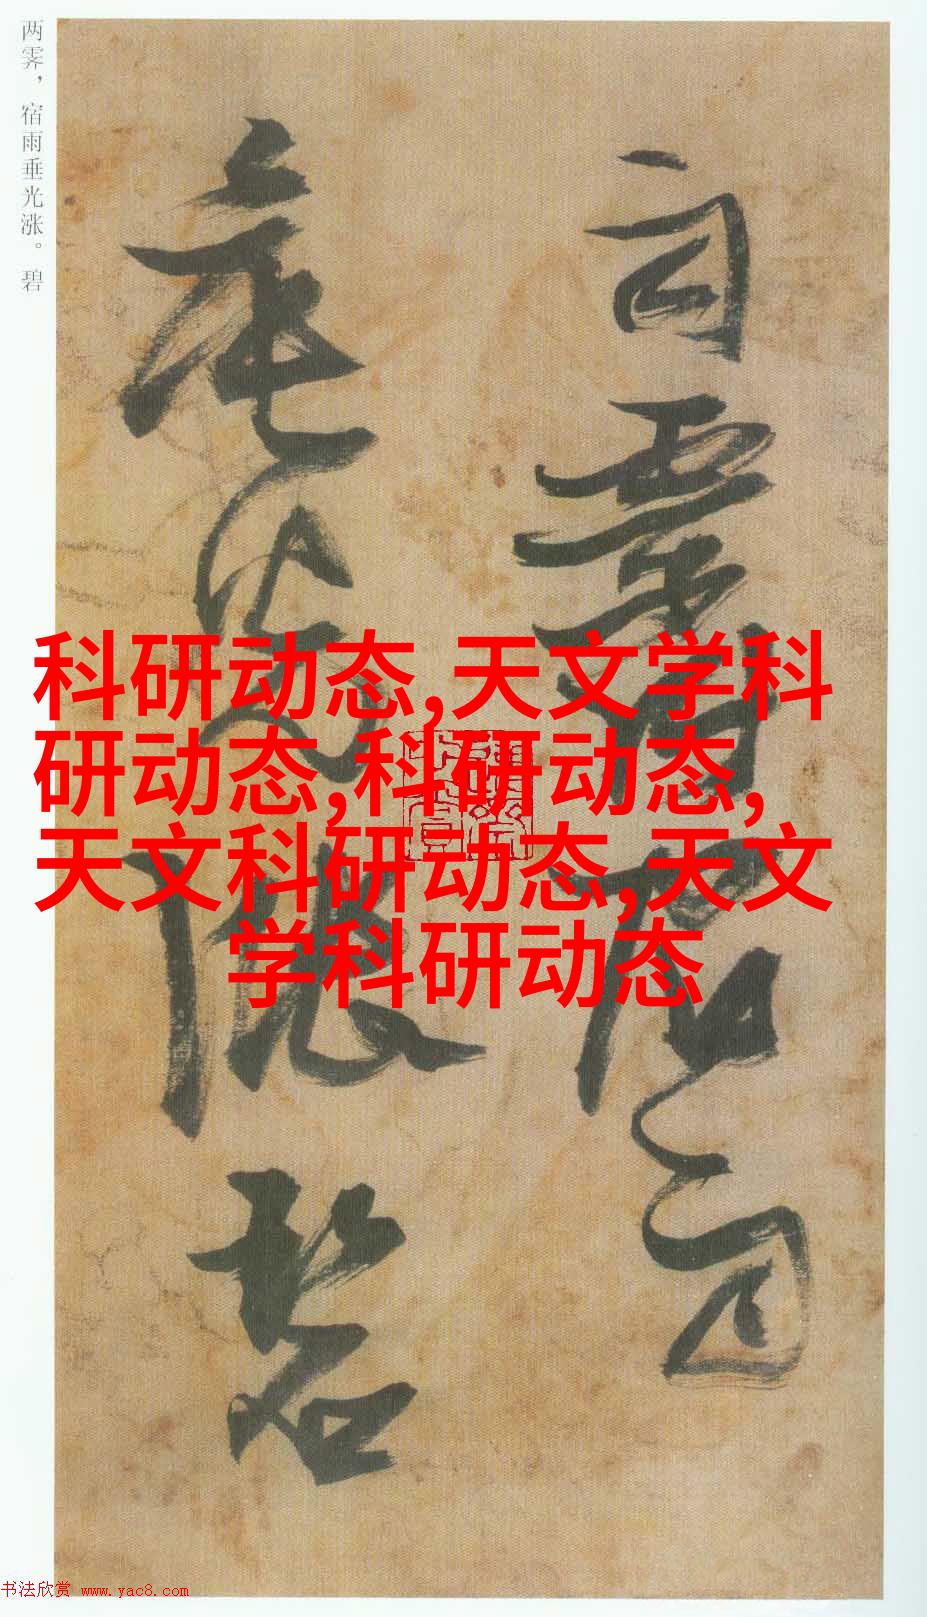 两霁，宿雨垂光涨。碧
两霁宿雨
垂光涨碧
科研动态,天文学科
研动态,科研动态,
天文科研动态,天文
学科研动态
书法欣赏 www.yac8.com